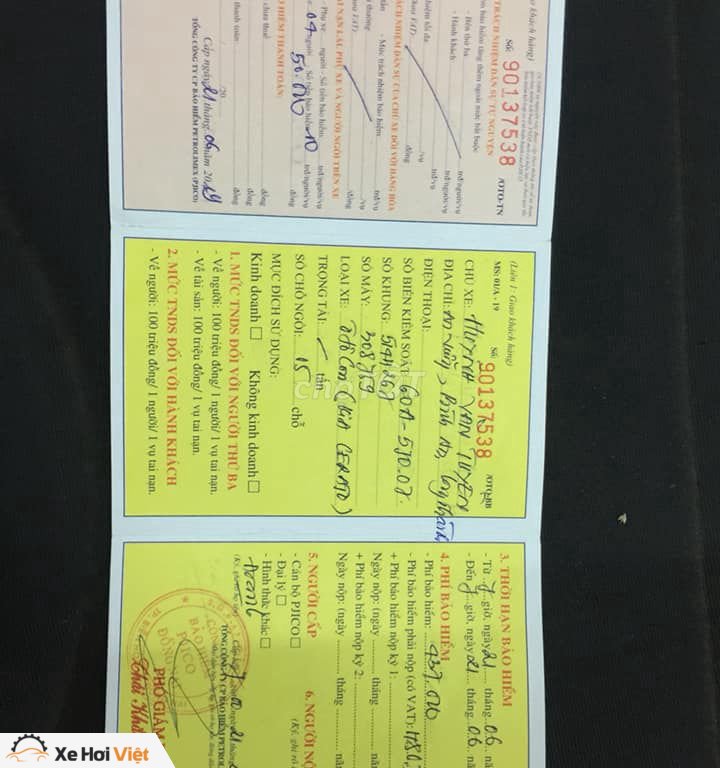 o khách hàng)
Số: 90137538 /OTO-TN
TRÁCH NHIỆM DÂN SỰ TỰ NGUYỆN
ền bảo hiểm tăng thêm ngoài mức bắt buộc
- Bên thứ ba
trđ/người/vụ
- Hành khách
trđ/người/vụ
hiệm tối đa: trđ/vụ
ồm VAT): đồng
RÁCH NHIỆM DÂN SỰ CỦA CHỦ XE ĐỐI VỚI HÀNG HÓA
- Mức trách nhiệm bảo hiểm: trđ/tấn
i thường /vụ
ồm VAT): đồng
AI NẠN LÁI, PHỤ XE VÀ NGƯỜI NGỒI TRÊN XE
- Phụ xe: người - Số tiền bảo hiểm: trđ/người/vụ
04 người - Số tiền bảo hiểm: 10 trđ/người/vụ
50.000 đồng
O HIỂM THANH TOÁN:
chưa thuế: đồng
thanh toán: đồng
Cấp ngày 21 tháng 06 năm 2019
TỔNG CÔNG TY CP BẢO HIỂM PETROLIMEX (PJICO)
(Liên 1: Giao khách hàng)
MS: 01/A - 19 Số: 90137538 /OTO-BB
CHỦ XE: HUỲNH VĂN TUYẾN
ĐỊA CHỈ:
ĐIỆN THOẠI:
SỐ BIỂN KIỂM SOÁT: 60A-570.07
SỐ KHUNG:
SỐ MÁY: 308759
LOẠI XE: ô tô con (KIA CERATO)
TRỌNG TẢI: tấn
SỐ CHỖ NGỒI: chỗ
MỤC ĐÍCH SỬ DỤNG:
Kinh doanh Không kinh doanh
1. MỨC TNDS ĐỐI VỚI NGƯỜI THỨ BA
- Về người: 100 triệu đồng/ 1 người/ 1 vụ tai nạn.
- Về tài sản: 100 triệu đồng/ 1 vụ tai nạn.
2. MỨC TNDS ĐỐI VỚI HÀNH KHÁCH
- Về người: 100 triệu đồng/ 1 người/ 1 vụ tai nạn.
3. THỜI HẠN BẢO HIỂM
- Từ giờ, ngày 21 tháng 06 nă
- Đến giờ, ngày 21 tháng 06 nă
4. PHÍ BẢO HIỂM
- Phí bảo hiểm: 437.000
- Phí bảo hiểm phải nộp (có VAT):
+ Phí bảo hiểm nộp kỳ 1:
Ngày nộp: (ngày tháng nă
+ Phí bảo hiểm nộp kỳ 2:
Ngày nộp: (ngày tháng nă
5. NGƯỜI CẤP
6. NGƯỜI NỘ
- Cán bộ PJICO
- Đại lý
- Hình thức khác
PJICO
PHÓ GIÁM
Xe Hơi Việt